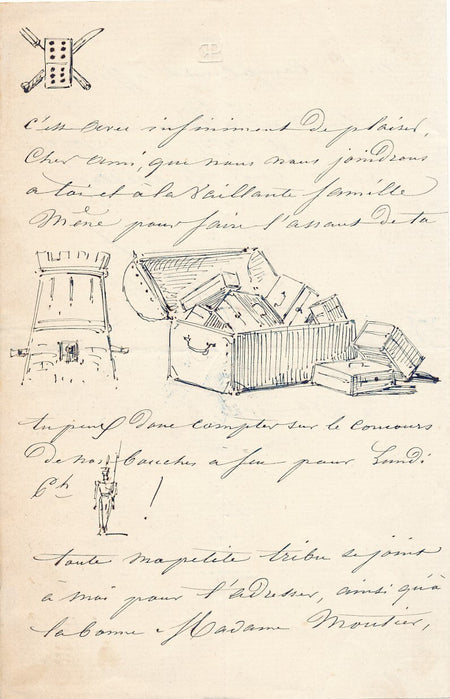 c'est avec infiniment de plaisir,
Cher ami, que nous nous joindrons
a toi et à la Vaillante famille
Mène pour faire l'assaut de ta
tu peux donc compter sur le concours
de nos bouches à feu pour Lundi
6h !
toute ma petite tribu se joint
à moi pour t'adresser, ainsi qu'à
la bonne Madame Moutier,